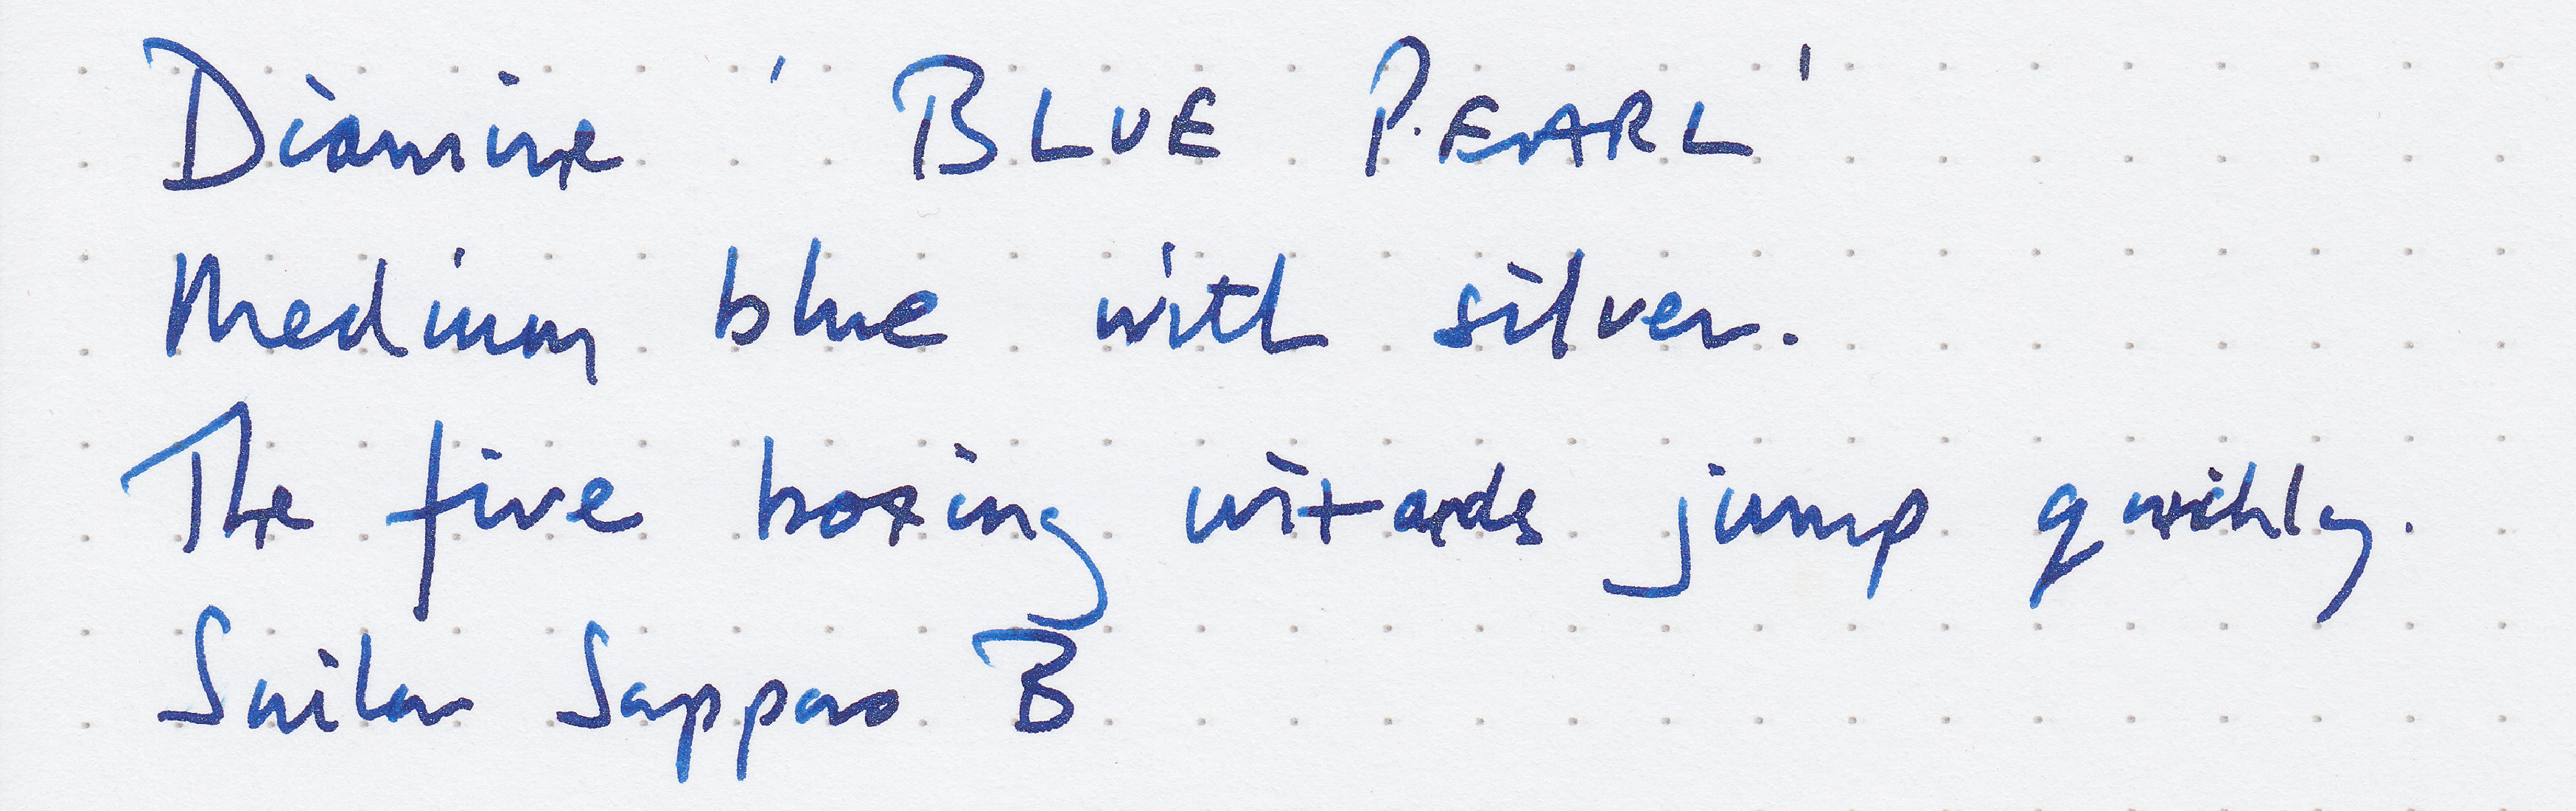 Diamine 'BLUE PEARL'
Medium blue with silver.
The five boxing wizards jump quickly.
Sailor Sapporo B